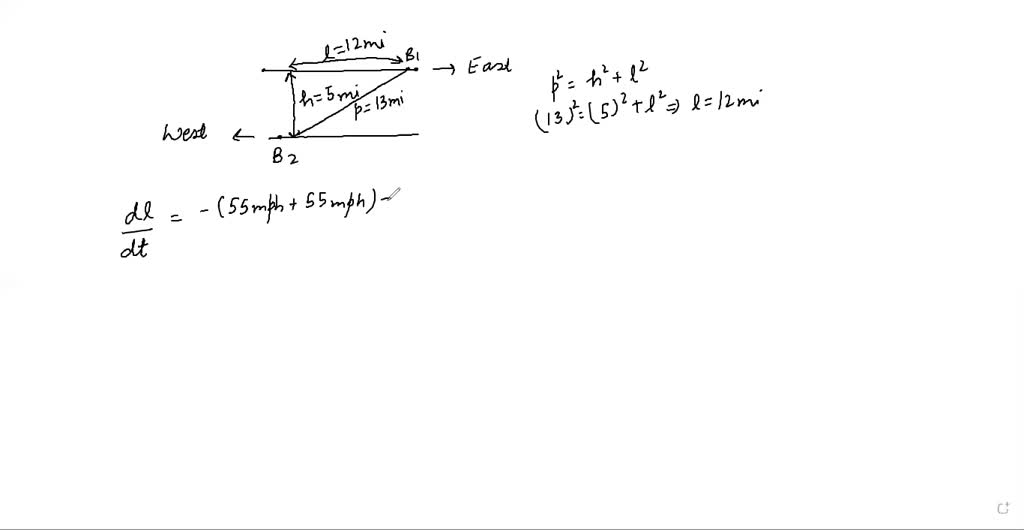 l=12mi
B1
→ East
h=5mi
p=13mi
West ←
B2
p² = h² + l²
(13)² = (5)² + l² ⇒ l = 12 mi
dl/dt = -(55mph + 55mph)